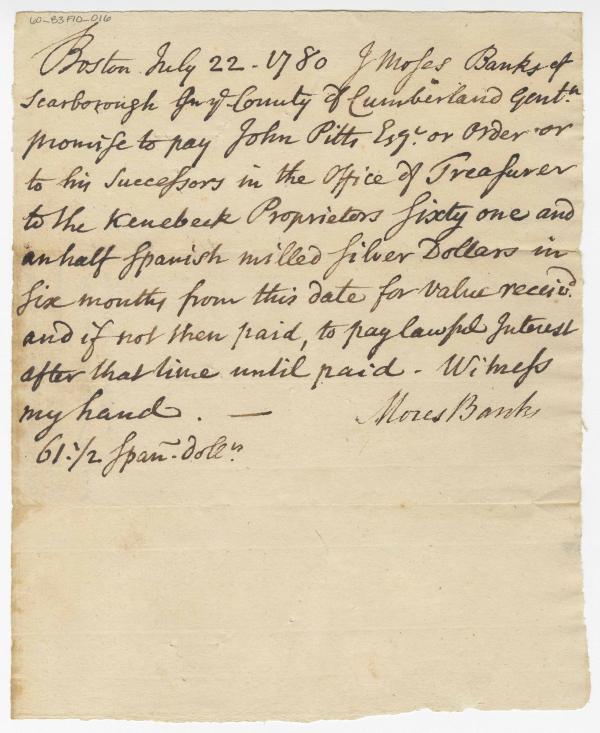 60-B3F10-016
Boston July 22 - 1780 I Moses Banks of
Scarborough In ye County of Cumberland Gentn
promise to pay John Pitts Esqr. or order or
to his Successors in the Office of Treasurer
to the Kenebeck Proprietors Sixty one and
an half Spanish milled Silver Dollars in
Six months from this date for value receivd.
and if not then paid, to pay lawful Interest
after that time until paid - Witness
my hand . —
Moses Banks
61.1/2 Span. dollrs